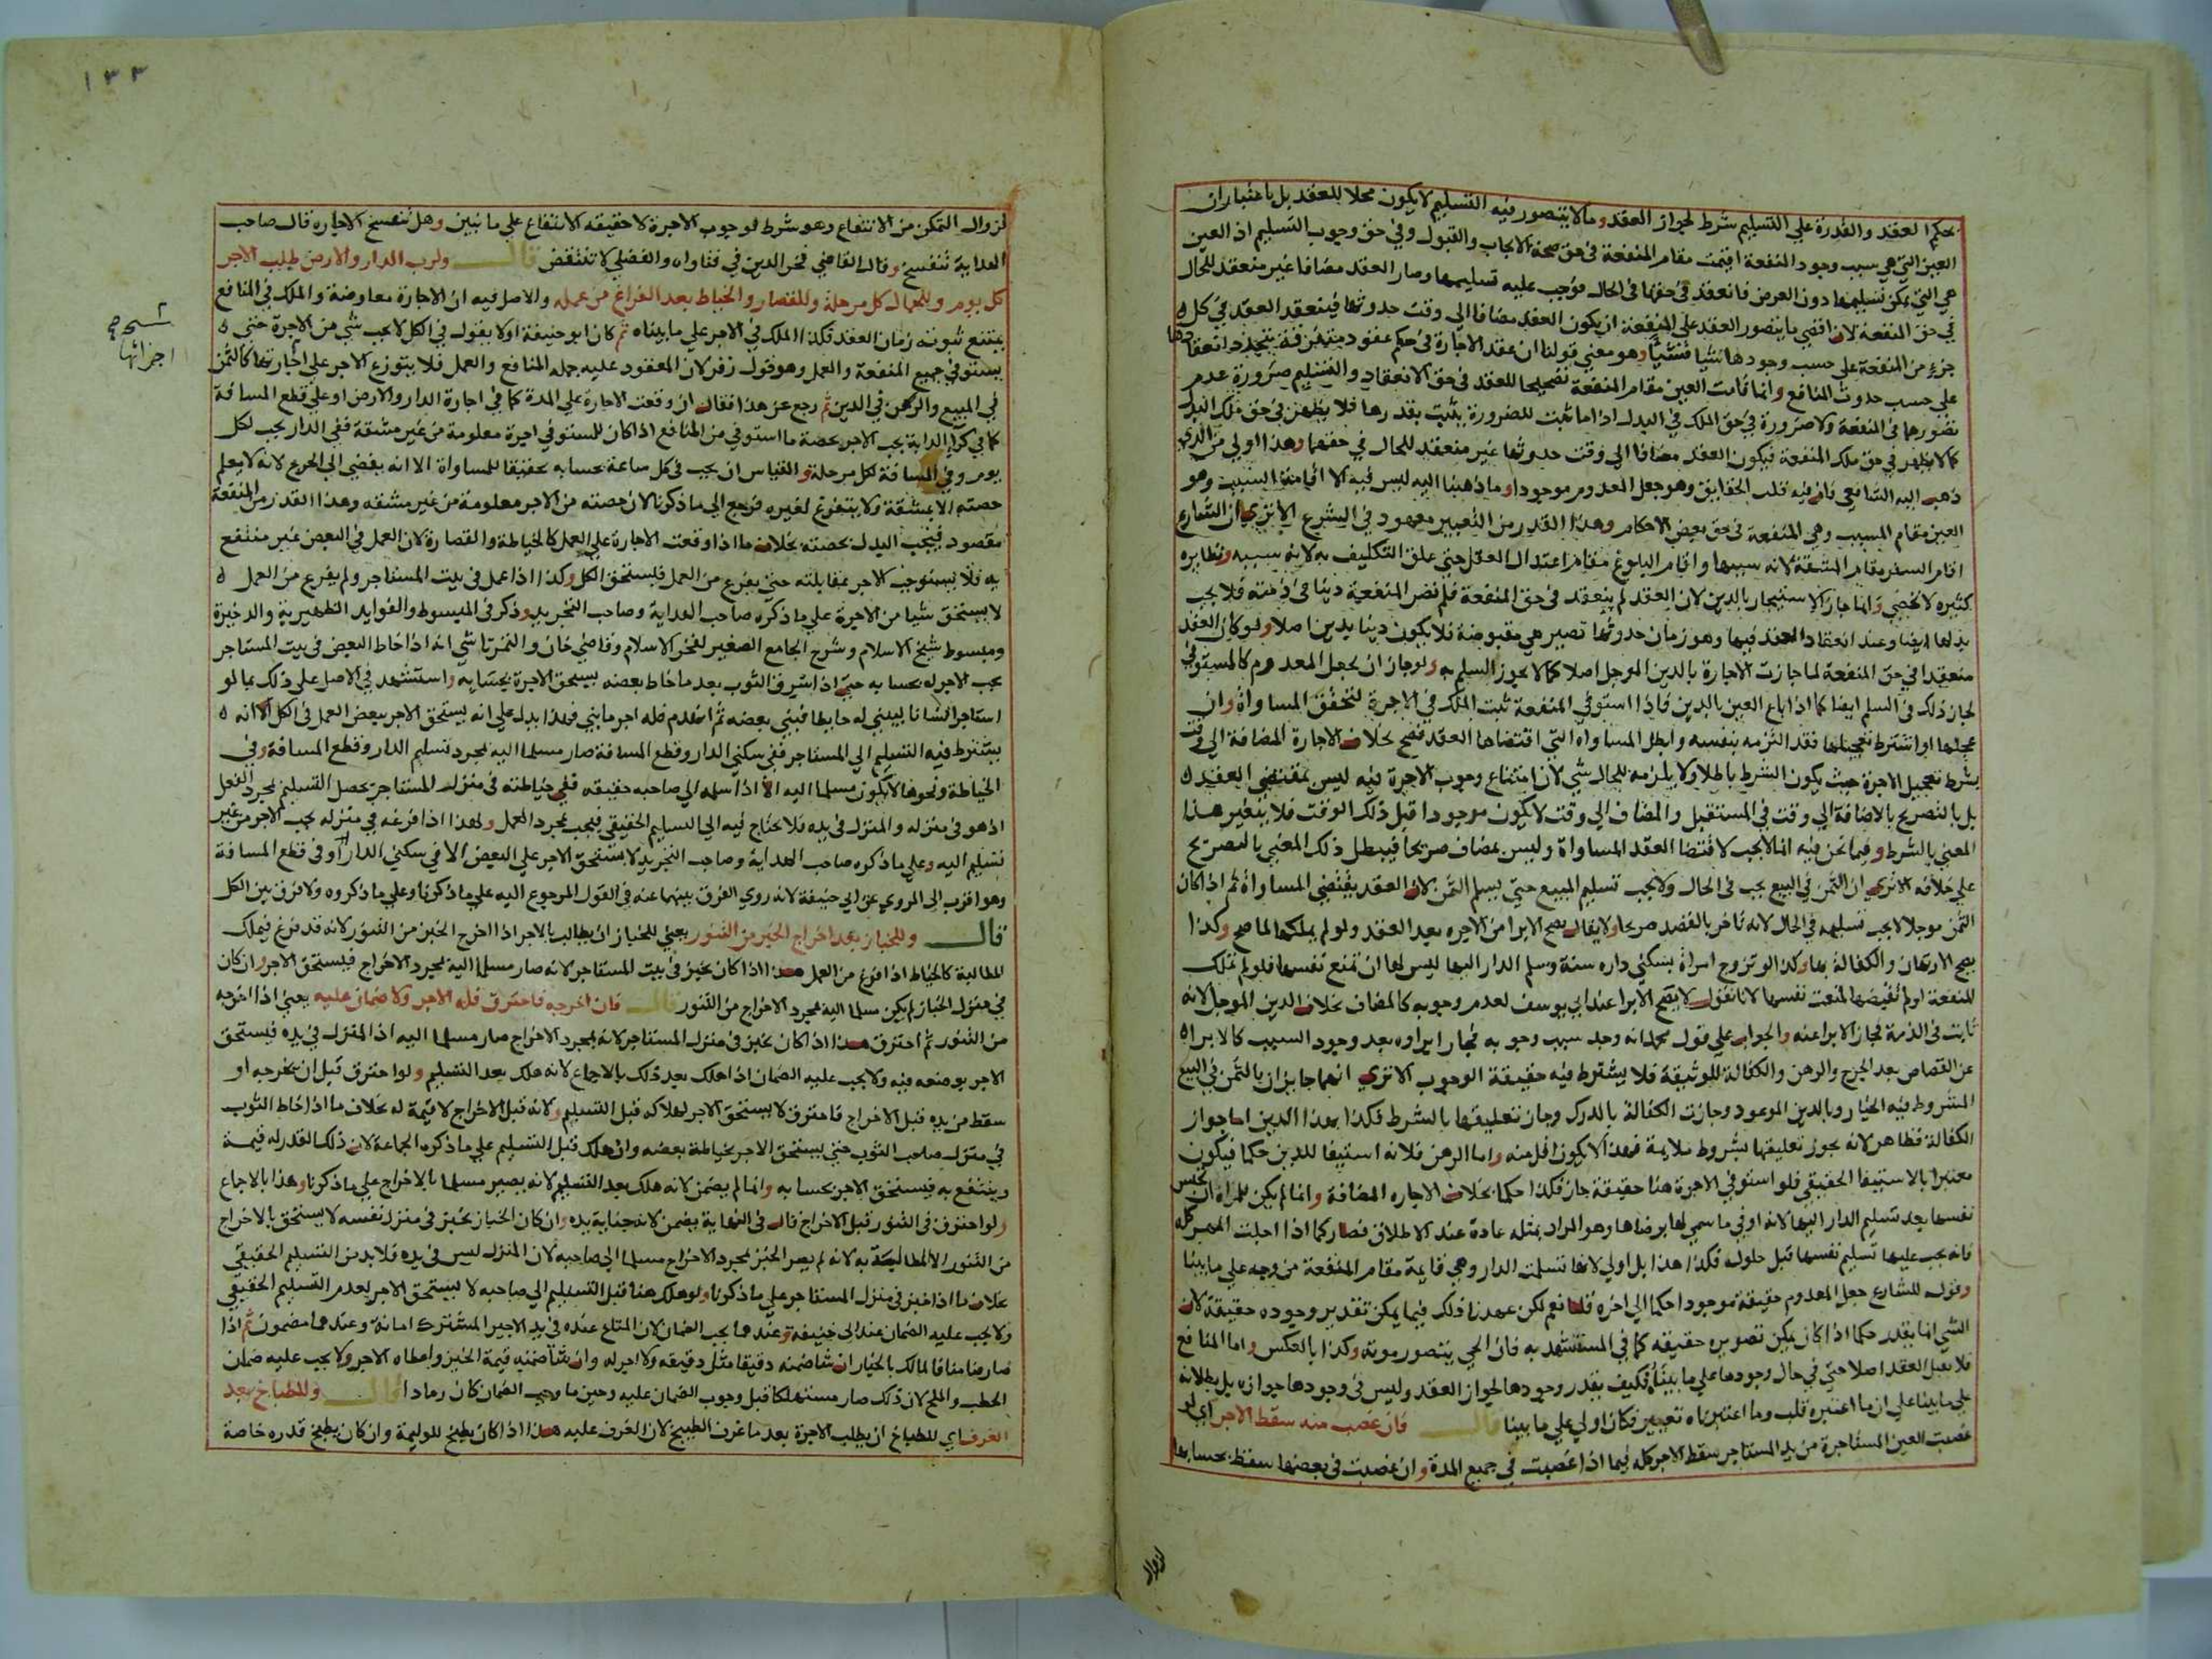 بحكم العقد والقدرة علي التسليم شرط لجواز العقد وما لا يتصور فيه التسليم لا يكون محلا للعقد بل باعتبار ان
العين التي هي سبب وجود المنفعة اقيمت مقام المنفعة في حق صحة الايجاب والقبول وفي حق وجوب التسليم اذ العين
هي التي يمكن تسليمها دون العرض فانعقد في حقها في الحال فوجب عليه تسليمها وصار العقد مضافا غير منعقد للحال
في حق المنفعة لان اقصي ما يتصور العقد علي المنفعة ان يكون العقد مضافا الي وقت حدوثها فينعقد العقد في كل
جزء من المنفعة علي حسب وجودها شيا فشيا وهو معني قولنا ان عقد الاجارة في حكم عقود متفرقة يتجدد انعقادها
علي حسب حدوث المنافع وانما قامت العين مقام المنفعة تصحيحا للعقد في حق الانعقاد والتسليم ضرورة عدم
تصورهما في المنفعة ولا ضرورة في حق الملك في البدل اذ ما ثبت للضرورة يثبت بقدرها فلا يظهر في حق ملك البدل
كما لا يظهر في حق ملك المنفعة فيكون العقد مضافا الي وقت حدوثها غير منعقد للحال في حقهما وهذا اولي من الذي
ذهب اليه الشافعي فان فيه قلب الحقايق وهو جعل المعدوم موجودا وما ذهبنا اليه ليس فيه الا اقامة السبب وهو
العين مقام المسبب وهي المنفعة في حق بعض الاحكام وهذا القدر من التغيير معهود في الشرع الا تري ان الشارع
اقام السفر مقام المشقة لانه سببها واقام البلوغ مقام اعتدال العقل حتي علق التكليف به لانه سببه ونظايره
كثيرة لا تحصي وانما جاز الاستيجار بالدين لان العقد لم ينعقد في حق المنفعة فلم تصر المنفعة دينا في ذمته فلا يجب
بدلها ايضا وعند انعقاد العقد فيها وهو زمان حدوثها تصير هي مقبوضة فلا يكون دينا بدين اصلا ولو كان العقد
منعقدا في حق المنفعة لما جازت الاجارة بالدين الموجل اصلا كما لا يجوز السلم به ولو جاز ان يجعل المعدوم كالمستوفي
لجاز ذلك في السلم ايضا كما اذا باع العين بالدين فاذا استوفي المنفعة ثبت الملك في الاجرة لتحقق المساواة وان
عجلها او اشترط تعجيلها فقد التزمه بنفسه وابطل المساواة التي اقتضاها العقد فصح بخلاف الاجارة المضافة الي وقت
بشرط تعجيل الاجرة حيث يكون الشرط باطلا ولا يلزمه للحال شي لان امتناع وجوب الاجرة فيه ليس بمقتضي العقد
بل بالتصريح بالاضافة الي وقت في المستقبل والمضاف الي وقت لا يكون موجودا قبل ذلك الوقت فلا يتغير هذا
المعني بالشرط وفيما نحن فيه انما لا يجب لاقتضا العقد المساواة وليس بمضاف صريحا فيبطل ذلك المعني بالتصريح
علي خلافه الا تري ان الثمن في البيع يجب في الحال ولا يجب تسليم المبيع حتي يسلم الثمن لان العقد يقتضي المساواة ثم اذا كان
الثمن موجلا لا يجب تسليمه في الحال لانه تاخر بالقصد صريحا ولا يقال يصح الابرا من الاجرة بعد العقد ولو لم يملكها لما صح وكذا
يصح الارتهان والكفالة بها وكذا لو تزوج امراة بسكني داره سنة وسلم الدار اليها ليس لها ان تمنع نفسها فلو لم تملك
المنفعة او لم تقبضها لمنعت نفسها لانا نقول لا يصح الابرا عند ابي يوسف لعدم وجوبه كالمضاف بخلاف الدين الموجل لانه
ثابت في الذمة فجاز الابرا عنه والجواب علي قول محمد انه وجد سبب وجوبه فجاز ابراوه بعد وجود السبب كالابرا
عن القصاص بعد الجرح والرهن والكفالة للوثيقة فلا يشترط فيه حقيقة الوجوب الا تري انهما جايزان بالثمن في البيع
المشروط فيه الخيار وبالدين الموعود وجازت الكفالة بالدرك وجاز تعليقها بالشرط فكذا بهذا الدين اما جواز
الكفالة فظاهر لانه يجوز تعليقها بشروط ملايمة فهذا لا يكون اقل منه واما الرهن فلانه استيفا للدين حكما فيكون
معتبرا بالاستيفا الحقيقي فلو استوفي الاجرة هنا حقيقة جاز فكذا حكما بخلاف الاجارة المضافة وانما لم يكن للمراة ان تحبس
نفسها بعد تسليم الدار اليها لانه اوفي ما سمي لها برضاها وهو المراد بمثله عادة عند الاطلاق فصار كما اذا احلت المهر كله
فانه يجب عليها تسليم نفسها قبل حلوله فكذا هذا بل اولي لانها تسلمت الدار وهي قايمة مقام المنفعة من وجه علي ما بينا
وقوله للشارع جعل المعدوم حقيقة موجودا حكما الي اخره قلنا نعم لكن عهدنا ذلك فيما يمكن تقدير وجوده حقيقة لان
الشي انما يقدر حكما اذا كان يمكن تصويره حقيقة كما في المستشهد به فان الحي يتصور موته وكذا بالعكس واما المنافع
فلا تقبل العقد اصلا حتي في حال وجودها علي ما بينا فكيف يقدر وجودها لجواز العقد وليس في وجودها جوازه بل بطلانه
علي ما بينا علي ان ما اعتبره قلب وما اعتبرناه تغيير فكان اولي علي ما بينا قال فان غصب منه سقط الاجر اي لو
غصبت العين المستاجرة من يد المستاجر سقط الاجر كله فيما اذا غصبت في جميع المدة وان غصبت في بعضها سقط بحسابها
لزوال
١٣٣
لزوال التمكن من الانتفاع وهو شرط لوجوب الاجرة لا حقيقة الانتفاع علي ما نبين وهل تنفسخ الاجارة قال صاحب
الهداية تنفسخ وقال القاضي فخر الدين في فتاواه والفضلي لا تنتقض قال ولرب الدار والارض طلب الاجر
كل يوم وللجمال كل مرحلة وللقصار والخياط بعد الفراغ من عمله والاصل فيه ان الاجارة معاوضة والملك في المنافع
يمتنع ثبوته زمان العقد فكذا الملك في الاجر علي ما بيناه ثم كان ابو حنيفة اولا يقول في الكل لا يجب شي من الاجرة حتي
يستوفي جميع المنفعة والعمل وهو قول زفر لان المعقود عليه جملة المنافع والعمل فلا يتوزع الاجر علي اجارتها كالثمن
اجزائها صح
في المبيع والرهن في الدين ثم رجع عن هذا فقال ان وقعت الاجارة علي المدة كما في اجارة الدار والارض او علي قطع المسافة
كما في كري الدابة يجب الاجر بحصة ما استوفي من المنافع اذا كان للمستوفي اجرة معلومة من غير مشقة ففي الدار يجب لكل
يوم وفي المسافة لكل مرحلة والقياس ان يجب في كل ساعة بحسابه تحقيقا للمساواة الا انه يفضي الي الحرج لانه لا يعلم
حصته الا بمشقة ولا يتفرغ لغيره فرجع الي ما ذكرنا لان حصته من الاجر معلومة من غير مشقة وهذا القدر من المنفعة
مقصود فيجب البدل بحصته بخلاف ما اذا وقعت الاجارة علي العمل كالخياطة والقصارة لان العمل في البعض غير منتفع
به فلا يستوجب الاجر بمقابلته حتي يفرغ من العمل فيستحق الكل وكذا اذا عمل في بيت المستاجر ولم يفرغ من العمل
لا يستحق شيا من الاجرة علي ما ذكره صاحب الهداية وصاحب التجريد وذكر في المبسوط والفوايد الظهيرية والذخيرة
ومبسوط شيخ الاسلام وشرح الجامع الصغير لفخر الاسلام وقاضي خان والتمرتاشي انه اذا خاط البعض في بيت المستاجر
يجب الاجر له بحسابه حتي اذا سرق الثوب بعد ما خاط بعضه يستحق الاجرة بحسابه واستشهد في الاصل علي ذلك بما لو
استاجر انسانا ليبني له حايطا فبني بعضه ثم انهدم فله اجر ما بني فهذا يدل علي انه يستحق الاجر ببعض العمل في الكل الا انه
يشترط فيه التسليم الي المستاجر ففي سكني الدار وقطع المسافة صار مسلما اليه بمجرد تسليم الدار وقطع المسافة وفي
الخياطة ونحوها لا يكون مسلما اليه الا اذا سلمه الي صاحبه حقيقة ففي خياطته في منزل المستاجر يحصل التسليم بمجرد الفعل
اذ هو في منزله والمنزل في يده فلا يحتاج فيه الي التسليم الحقيقي فيجب بمجرد العمل ولهذا اذا فرغه في منزله يجب الاجر من غير
تسليم اليه وعلي ما ذكره صاحب الهداية وصاحب التجريد لا يستحق الاجر علي البعض الا في سكني الدار او في قطع المسافة
وهو اقرب الي المروي عن ابي حنيفة لانه روي الفرق بينهما عنه في القول المرجوع اليه علي ما ذكرنا وعلي ما ذكروه ولا فرق بين الكل
قال وللخباز بعد اخراج الخبز من التنور يعني للخباز ان يطالب بالاجر اذا اخرج الخبز من التنور لانه قد فرغ فيملك
المطالبة كالخياط اذا فرغ من العمل هذا اذا كان يخبز في بيت المستاجر لانه صار مسلما اليه بمجرد الاخراج فيستحق الاجر وان كان
في منزل الخباز لم يكن مسلما اليه بمجرد الاخراج من التنور قال فان اخرجه فاحترق فله الاجر ولا ضمان عليه يعني اذا اخرجه
من التنور ثم احترق هذا اذا كان يخبز في منزل المستاجر لانه بمجرد الاخراج صار مسلما اليه اذ المنزل في يده فيستحق
الاجر بوضعه فيه ولا يجب عليه الضمان اذا هلك بعد ذلك بالاجماع لانه هلك بعد التسليم ولو احترق قبل ان يخرجه او
سقط من يده قبل الاخراج فاحترق لا يستحق الاجر لهلاكه قبل التسليم ولانه قبل الاخراج لا قيمة له بخلاف ما اذا خاط الثوب
في منزل صاحب الثوب حتي يستحق الاجر بخياطة بعضه وان هلك قبل التسليم علي ما ذكره الجماعة لان ذلك القدر له قيمة
وينتفع به فيستحق الاجر بحسابه وانما لم يضمن لانه هلك بعد التسليم لانه يصير مسلما بالاخراج علي ما ذكرنا وهذا بالاجماع
ولو احترق في التنور قبل الاخراج قال في النهاية يضمن لانه جناية يده وان كان الخباز يخبز في منزل نفسه لا يستحق بالاخراج
من التنور الا المطالبة به لانه لم يصر الخبز بمجرد الاخراج مسلما الي صاحبه لان المنزل ليس في يده فلا بد من التسليم الحقيقي
بخلاف ما اذا خبز في منزل المستاجر علي ما ذكرنا ولو هلك هنا قبل التسليم الي صاحبه لا يستحق الاجر لعدم التسليم الحقيقي
ولا يجب عليه الضمان عند ابي حنيفة وعندهما يجب الضمان لان المتاع عنده في يد الاجير المشترك امانة وعندهما مضمون ثم اذا
صار ضامنا فالمالك بالخيار ان شا ضمنه دقيقا مثل دقيقه ولا اجر له وان شا ضمنه قيمة الخبز واعطاه الاجر ولا يجب عليه ضمان
الحطب والملح لان ذلك صار مستهلكا قبل وجوب الضمان عليه وحين ما وجب الضمان كان رمادا قال وللطباخ بعد
الغرف اي للطباخ ان يطلب الاجرة بعد ما غرف الطبيخ لان الغرف عليه هذا اذا كان يطبخ للوليمة وان كان يطبخ قدره خاصة